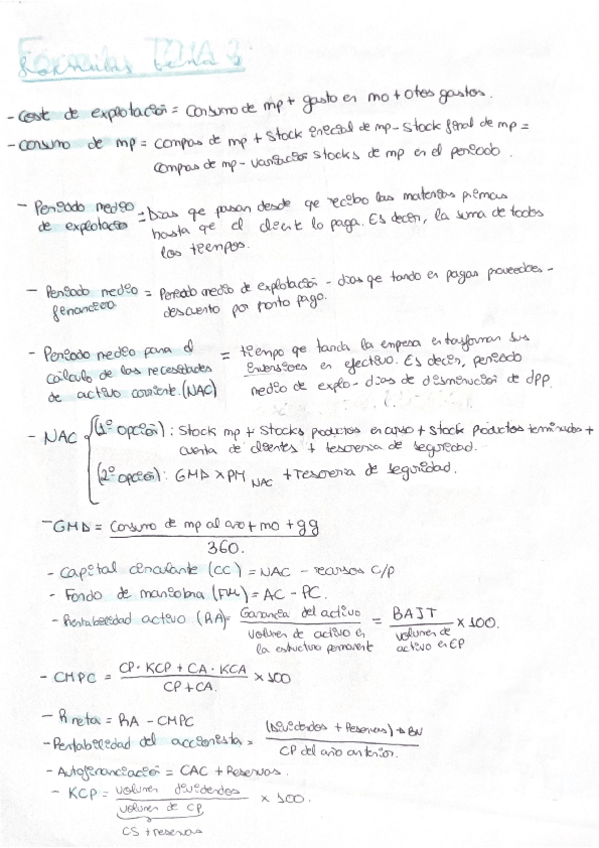 Formulas TEMA 3
- Coste de explotación = Consumo de mp + gasto en mo + otros gastos.
- Consumo de mp = compras de mp + Stock inicial de mp - Stock final de mp =
compras de mp - variación stocks de mp en el periodo.
- Periodo medio de explotación = Días que pasan desde que recibo las materias primas
hasta que el cliente lo paga. Es decir, la suma de todos
los tiempos.
- Periodo medio financiero = Periodo medio de explotación - días que tardo en pagar proveedores -
descuento por pronto pago.
- Periodo medio para el = tiempo que tarda la empresa en trasformar sus
cálculo de las necesidades inversiones en efectivo. Es decir, periodo
de activo corriente. (NAC) medio de explo - días de disminución de dpp.
- NAC (1º opción): Stock mp + Stocks productos en curso + Stock productos terminados +
cuenta de clientes + tesorería de seguridad.
(2º opción): GMD x PM NAC + Tesorería de seguridad.
- GMD = Consumo de mp al año + mo + gg
360.
- Capital circulante (CC) = NAC - recursos c/p
- Fondo de maniobra (FM) = AC - PC.
- Rentabilidad activo (RA) = Ganancia del activo / volumen de activo en la estructura permanente = BAIT / volumen de activo en CP x 100.
- CMPC = CP · KCP + CA · KCA / CP + CA x 100
- R neta = RA - CMPC
- Rentabilidad del accionista = (Dividendos + Reservas) / CP del año anterior.
- Autofinanciación = CAC + Reservas.
- KCP = volumen dividendos / volumen de CP x 100.
CS + reservas